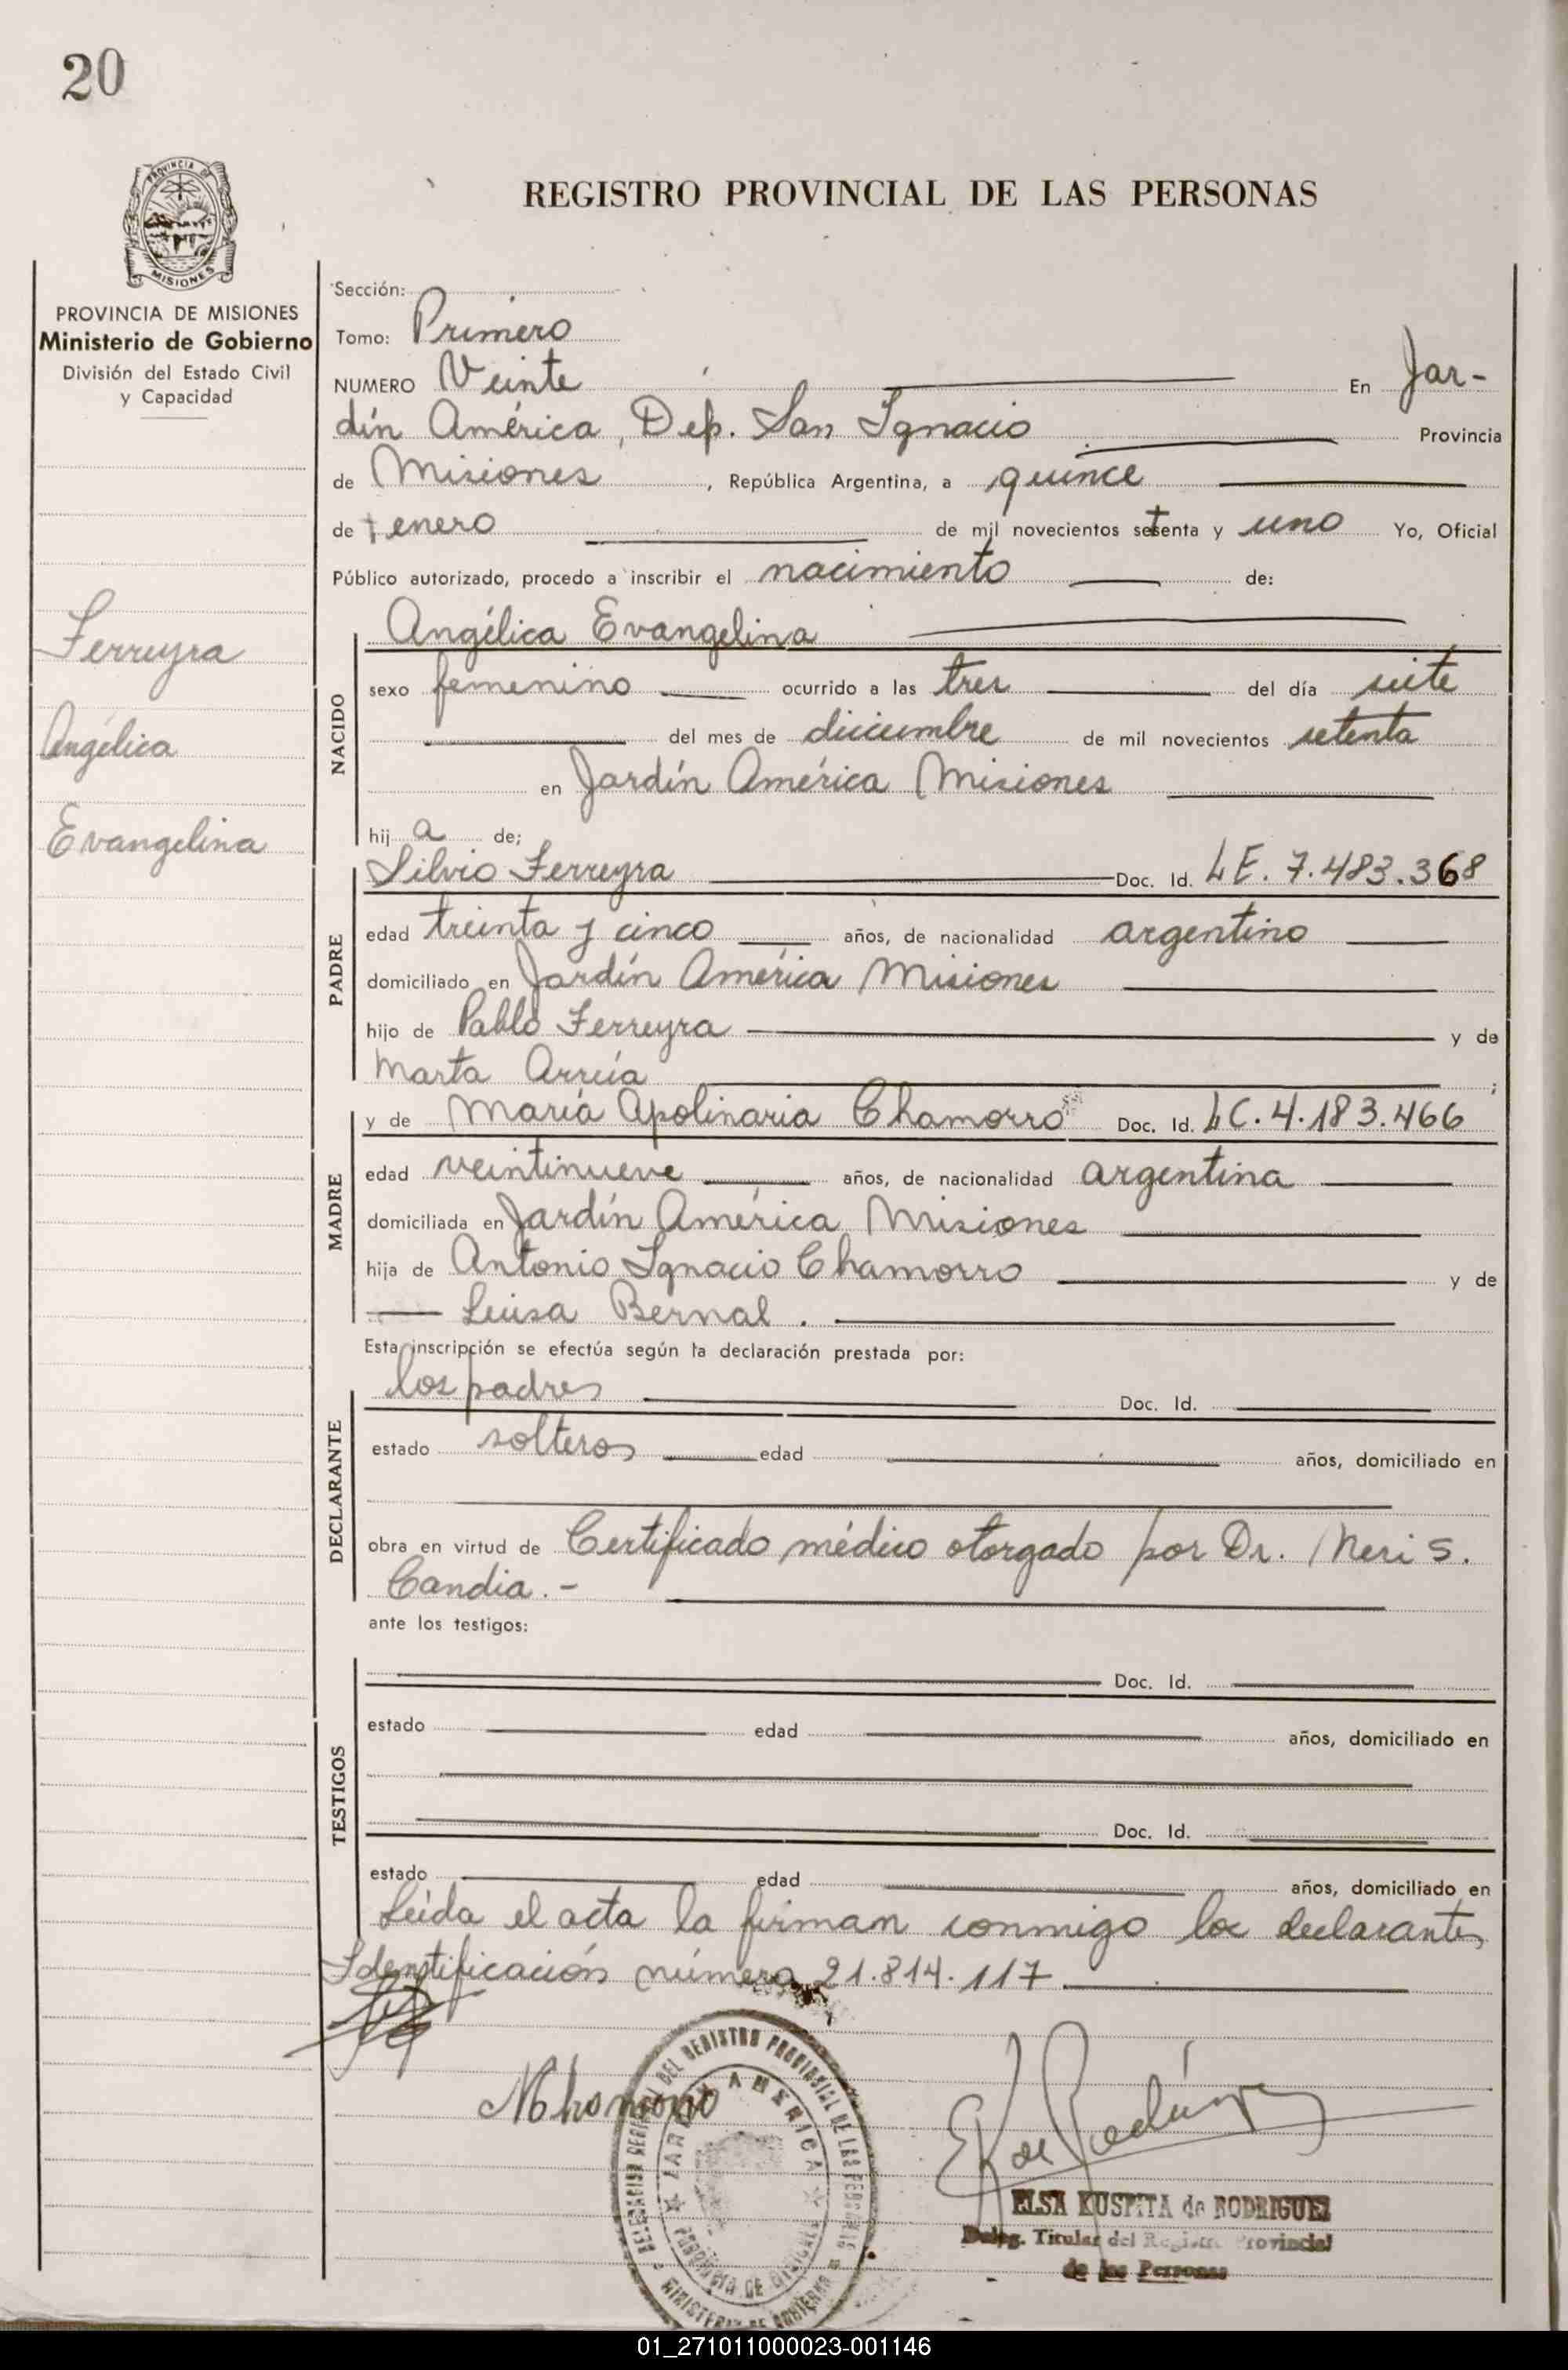 20
PROVINCIA DE
MISIONES
REGISTRO PROVINCIAL DE LAS PERSONAS
PROVINCIA DE MISIONES
Ministerio de Gobierno
División del Estado Civil
y Capacidad
Ferreyra
Angélica
Evangelina
Sección:
Tomo: Primero
NUMERO Veinte En Jar-
dín América, Dep. San Ignacio Provincia
de Misiones, República Argentina, a quince
de enero de mil novecientos setenta y uno Yo, Oficial
Público autorizado, procedo a inscribir el nacimiento de:
NACIDO
Angélica Evangelina
sexo femenino ocurrido a las tres del día siete
del mes de diciembre de mil novecientos setenta
en Jardín América Misiones
hij a de;
PADRE
Silvio Ferreyra Doc. Id. LE. 7.483.368
edad treinta y cinco años, de nacionalidad argentino
domiciliado en Jardín América Misiones
hijo de Pablo Ferreyra y de
Marta Arrúa ;
MADRE
y de María Apolinaria Chamorro Doc. Id. LC. 4.183.466
edad veintinueve años, de nacionalidad argentina
domiciliada en Jardín América Misiones
hija de Antonio Ignacio Chamorro y de
Luisa Bernal.
Esta inscripción se efectúa según la declaración prestada por:
DECLARANTE
los padres Doc. Id.
estado solteros edad años, domiciliado en
obra en virtud de Certificado médico otorgado por Dr. Neri S.
Candia.-
ante los testigos:
TESTIGOS
Doc. Id.
estado edad años, domiciliado en
Doc. Id.
estado edad años, domiciliado en
Leída el acta la firman conmigo los declarantes
Identificación número 21.814.117
DEL REGISTRO PROVINCIAL DE LAS PERSONAS
JARDIN AMERICA
MINISTERIO DE GOBIERNO
ELSA KUSPITA de RODRIGUEZ
Deleg. Titular del Registro Provincial
de las Personas
01_271011000023-001146